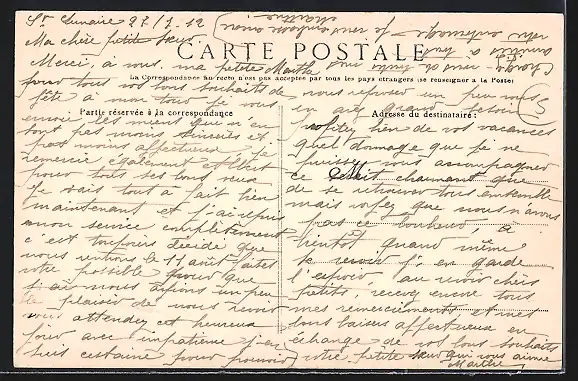 St Lunaire 27/7.12
Ma chère petite sœur
CARTE POSTALE
Merci, à vous, ma petite Martha
La Correspondance au recto n'est pas acceptée par tous les pays étrangers (se renseigner à la Poste)
pour tous vos bons souhaits de
fête à mon tour je vous
Partie réservée à la correspondance
envoie les miens qui n'en
sont pas moins sincères et
pas moins affectueux. Je
remercie également
pour tous ses bons vœux
Je vais tout à fait bien
maintenant et j'ai repris
mon service complètement
c'est toujours décidé que
nous rentrons le 11 août faites
votre possible pour que
nous ayions un peu
le plaisir de vous revoir
vous attendez cet heureux
jour avec impatience j'en
suis certaine pour pouvoir
vous reposer un peu vous
en avez grand besoin
Adresse du destinataire :
profitez bien de vos vacances
quel dommage que je ne
puisse vous accompagner
ce serait charmant que
de se retrouver tous ensemble
mais voyez que nous n'avons
pas ce bonheur, à
bientôt quand même
le revoir j'en garde
l'espoir, au revoir chers
petits, recevez encore tous
mes remerciements et mes
bons baisers affectueux en
échange de vos bons souhaits
votre petite sœur qui vous aime
Marthe